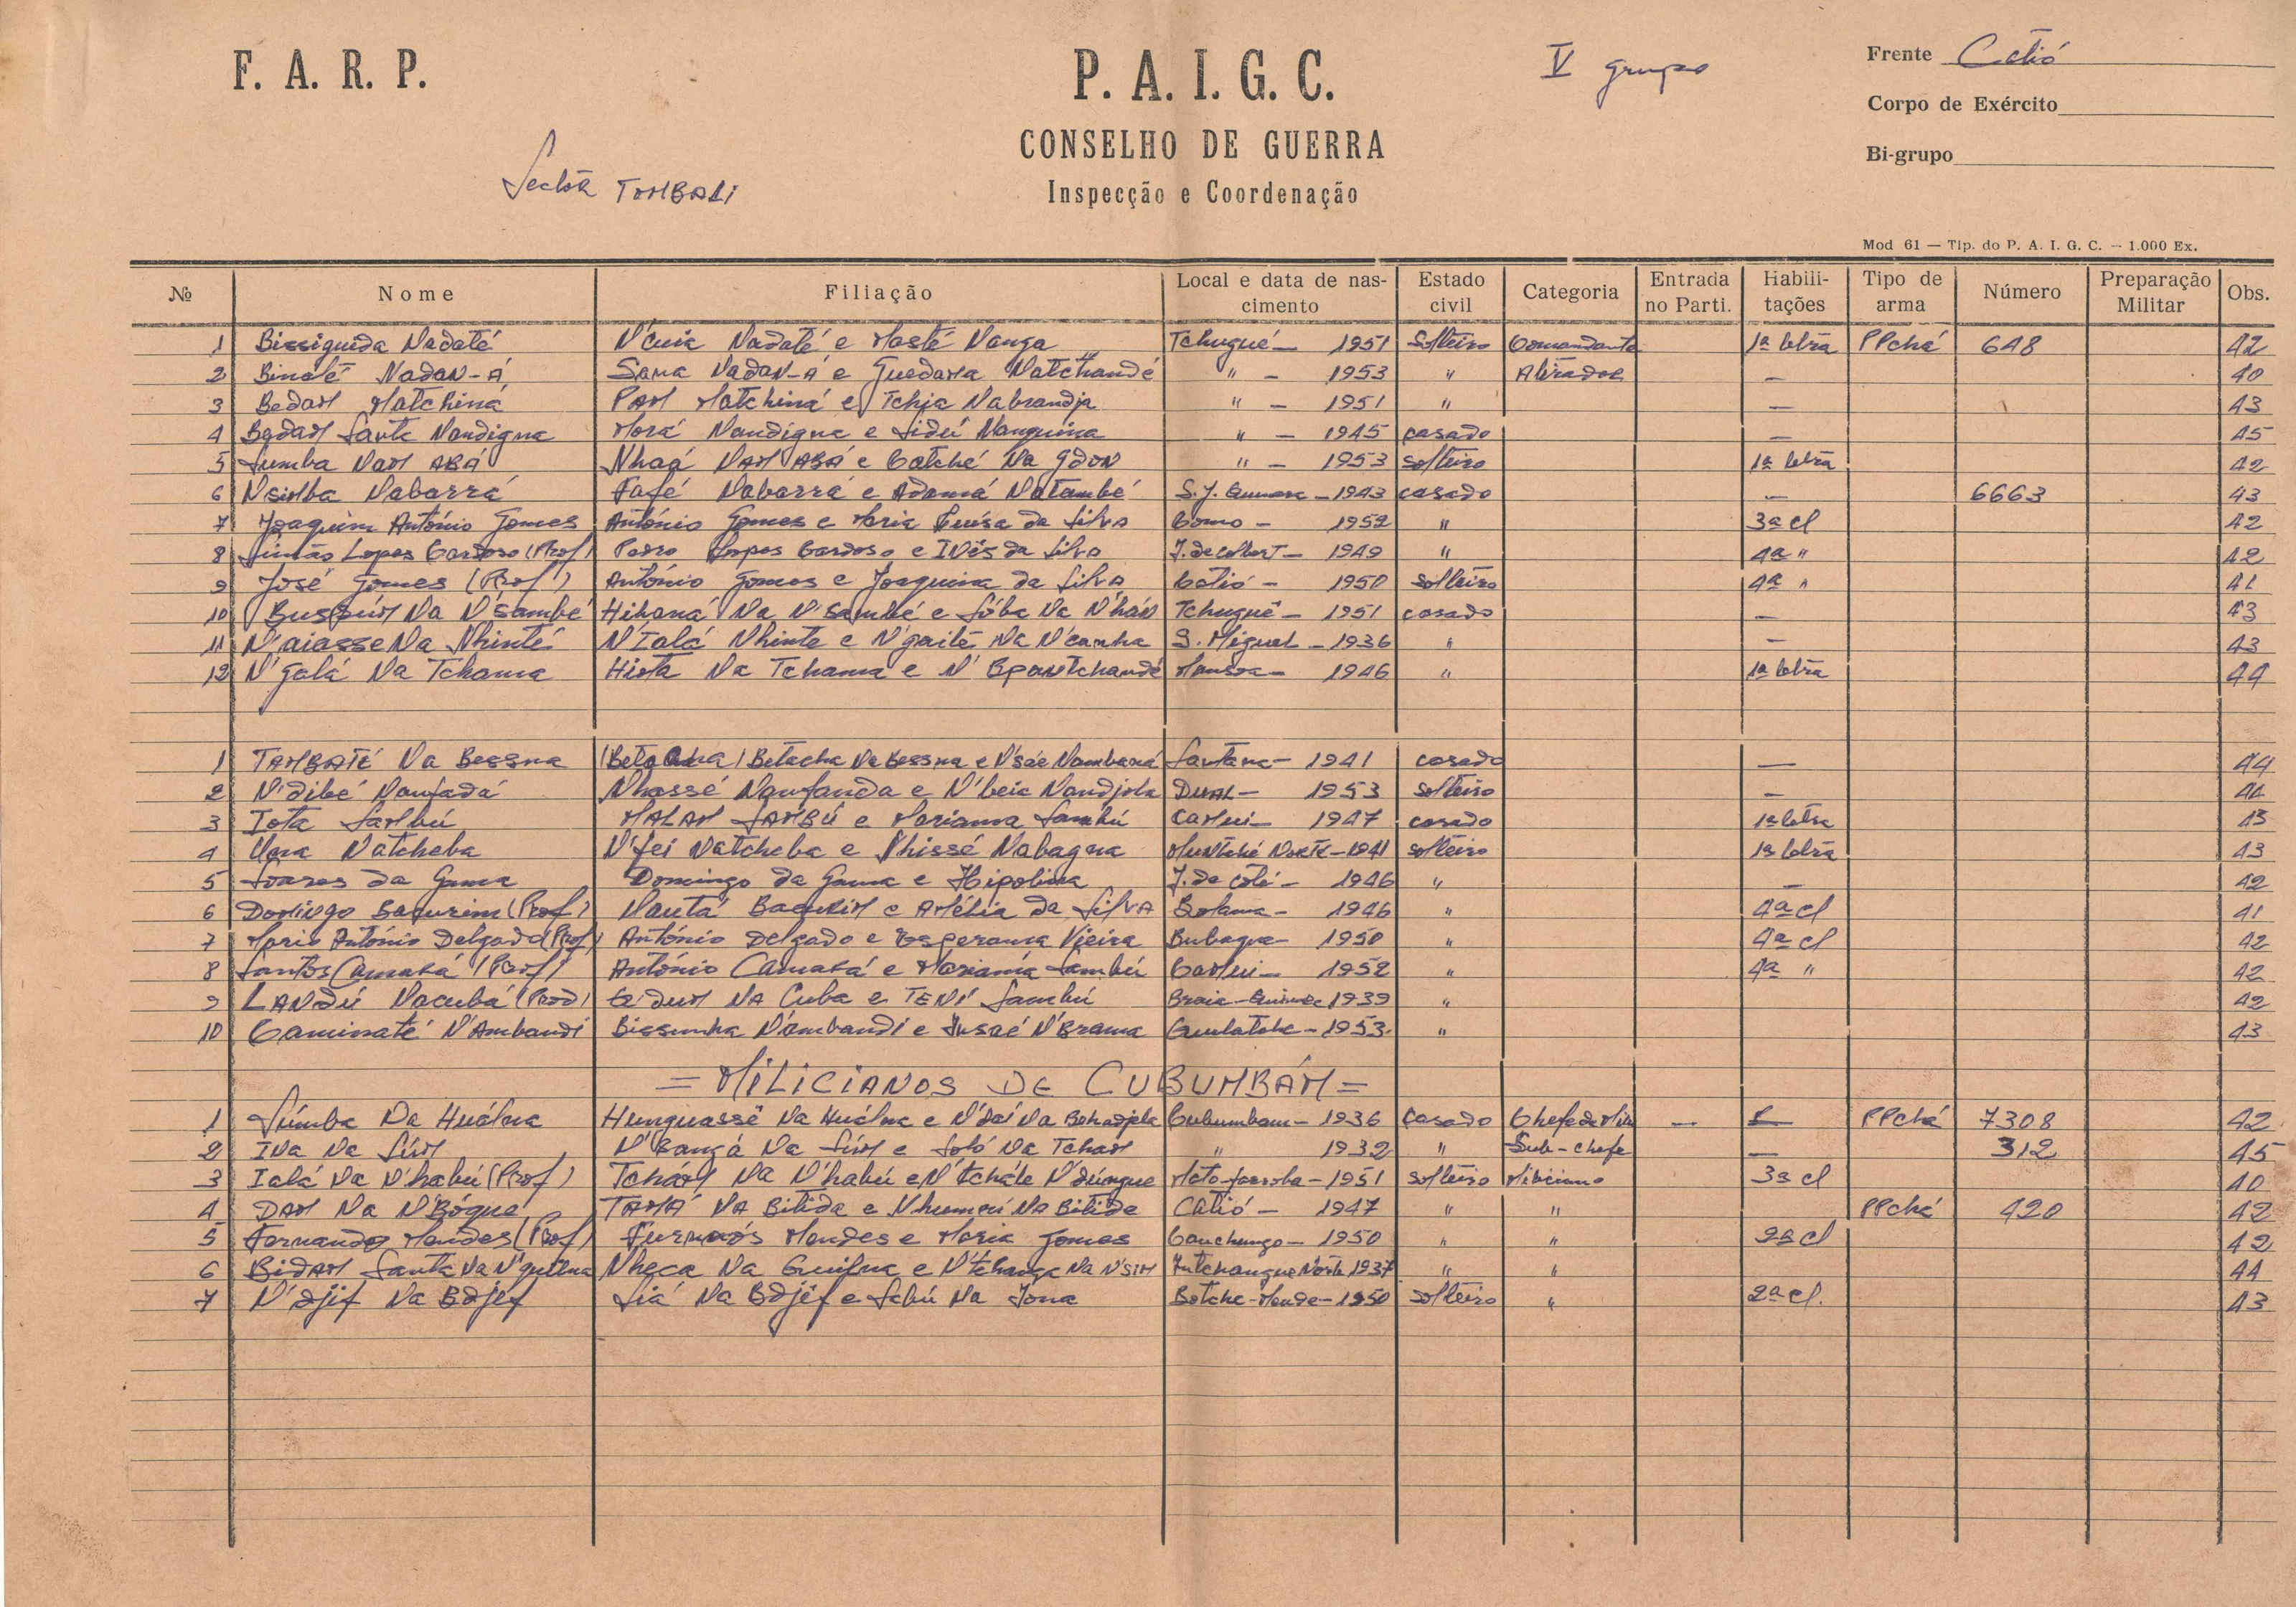 F. A. R. P.
P. A. I. G. C.
V grupo
Frente Catió
CONSELHO DE GUERRA
Corpo de Exército
Sector TOMBALI
Inspecção e Coordenação
Bi-grupo
Mod 61 — Tip. do P. A. I. G. C. — 1.000 Ex.
№ Nome Filiação Local e data de nascimento Estado civil Categoria Entrada no Parti. Habilitações Tipo de arma Número Preparação Militar Obs.
1 Bissiguida Nadaté N'cuia Nadaté e Masté Nanga Tchugué — 1951 Solteiro Comandante 1ª letra PPchá 648 42
2 Binalé NADAN-Á Sama NADAN-Á e Guedama Natchandé " — 1953 " Atirador — 40
3 Bedam Matchiná PAM Matchiná e Tchia Nabrandja " — 1951 " — 43
4 Bedam Santa Nandigna Morá Nandigna e Sideú Nanguina " — 1945 casado — 45
5 Sumba NAM ABÁ Nhaá NAM ABÁ e Catché Na GDON " — 1953 solteiro 1ª letra 42
6 Nsimba Nabarrá Fafé Nabarrá e Adamá Natambé S. J. — 1943 casado — 6663 43
7 Joaquim António Gomes António Gomes e Maria Luísa da Silva Como — 1952 " 3ª cl 42
8 Simão Lopes Cardoso (Prof) Pedro Lopes Cardoso e Inês da Silva J. de — 1949 " 4ª " 42
9 José Gomes (Prof) António Gomes e Joaquina da Silva Catió — 1950 solteiro 4ª " 41
10 Buspúm Na N'sambé Hihaná Na N'sambé e Sóba Na N'hán Tchuguê — 1951 casado — 43
11 N'aiasse Na Nhinté N'Ialá Nhinte e N'gaité Na N'canha S. Miguel — 1936 " — 43
12 N'galá Na Tchama Hista Na Tchama e N' Mansoa — 1946 " 1ª letra 44
1 TAMBATÉ Na Bessna Betacha Na Bessna e N'sáe Nambaná Santana — 1941 casado — 44
2 N'dibé Nanfadá Nhassé Nanfanda e N'beia Nandjola — 1953 solteiro — 44
3 Iota Sambú MALAM SAMBÚ e Mariama Sambú — 1947 casado 1ª letra 43
4 Natcheba N'fei Natcheba e Nhissé Nabagna NORTE — 1941 solteiro 1ª letra 43
5 Soares da Gama Domingo da Gama e Hipolina J. de — 1946 " — 42
6 Domingo Baqurim (Prof) Nautá Baqurim e Amélia da Silva Bolama — 1946 " 4ª cl 41
7 Mario António Delgado (Prof) António Delgado e Esperança Vieira Bubaque — 1950 " 4ª cl 42
8 Santos Camará (Prof) António Camará e Mariama Sambú — 1952 " 4ª " 42
9 LANDÚ Nacubá (Prod) NA Cuba e TENÍ Sambú 1939 " 42
10 Caminaté N'Ambandi Bissunha N'ambandi e Jusaé N'Brama — 1953. " 43
= MILICIANOS DE CUBUMBÁM =
1 Súmba Na Huálna Hunguassê Na Huálna e N'daí Na Bohadjela Cubumbam — 1936 casado Chefe de Mili — PPchá 7308 42
2 INA Na Súm N'Bangá Na Súm e Soló Na Tcham " 1932 " Sub-chefe — 312 45
3 Ialá Na N'habú (Prof) Tchám Na N'habú e N'tchále N'dúngue Mato-farroba — 1951 solteiro Miliciano 3ª cl 40
4 DAM Na N'Bógue TAMÁ NA Bitida e Na Bitide Catió — 1947 " " PPchá 420 42
5 Fernando Mendes (Prof) Mendes e Maria Gomes Canchungo — 1950 " " 2ª cl 42
6 BIDAM Santa Na Nheca Na e N'tchanga Na N'SIM Norte 1937 " " 44
7 N'djif Na Bdjef Siá Na Bdjéf e Sabú Na Jona — 1950 solteiro " 2ª cl. 43